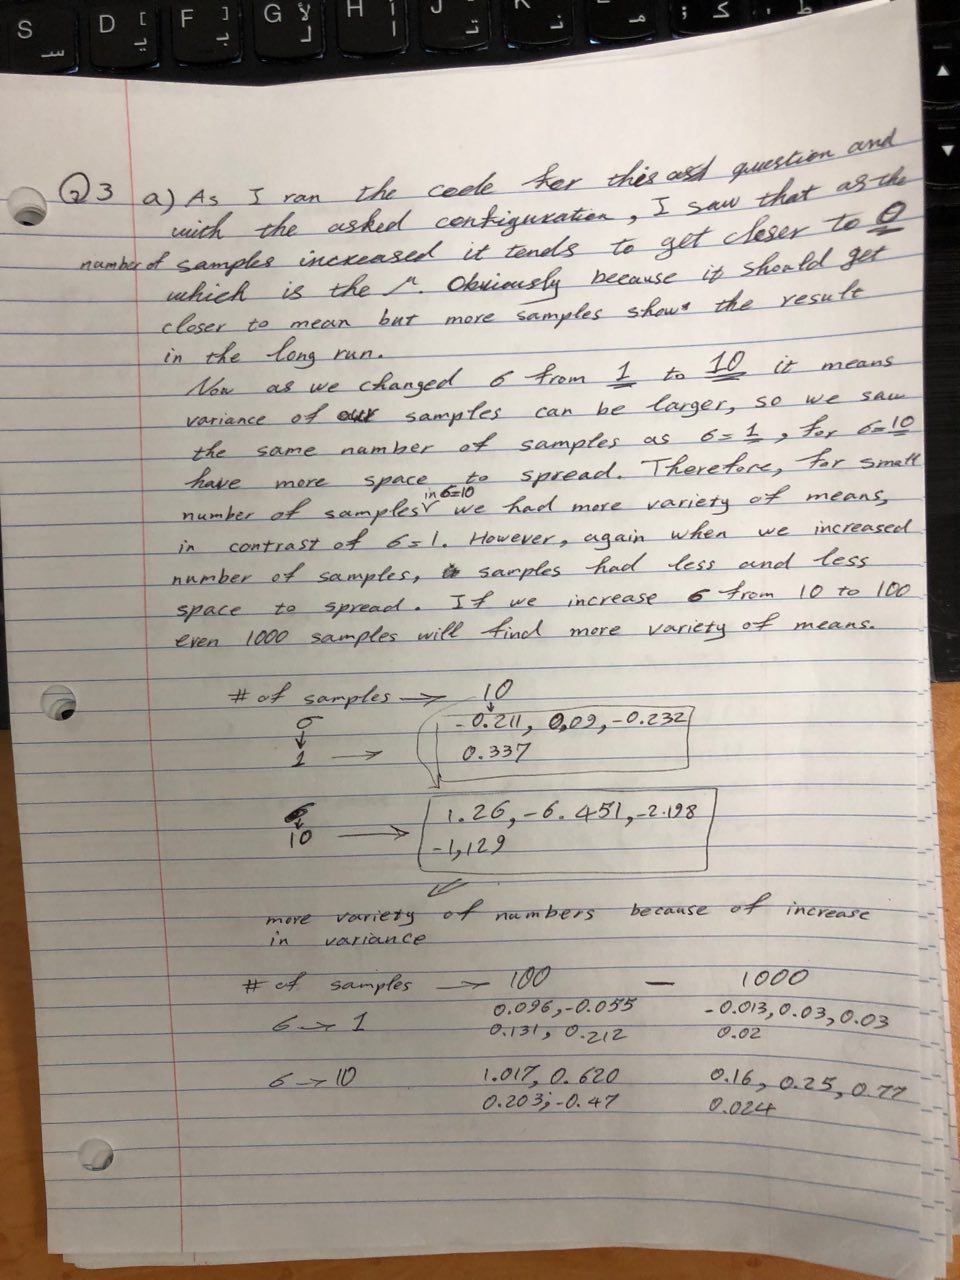 S D F G H J K
Q3 a) As I ran the code for this question and
with the asked configuration, I saw that as the
number of samples increased it tends to get closer to 0
which is the μ. Obviously because it should get
closer to mean but more samples shows the result
in the long run.
Now as we changed σ from 1 to 10 it means
variance of our samples can be larger, so we saw
the same number of samples as σ=1, for σ=10
have more space to spread. Therefore, for small
number of samples in σ=10 we had more variety of means,
in contrast of σ=1. However, again when we increased
number of samples, samples had less and less
space to spread. If we increase σ from 10 to 100
even 1000 samples will find more variety of means.
# of samples → 10
σ ↓ -0.211, 0,09, -0.232
1 → 0.337
σ 1.26, -6.451, -2.198
10 → -1,129
more variety of numbers because of increase
in variance
# of samples → 100 — 1000
0.096, -0.055 -0.013, 0.03, 0.03
σ → 1 0.131, 0.212 0.02
σ → 10 1.017, 0.620 0.16, 0.25, 0.77
0.203, -0.47 0.024